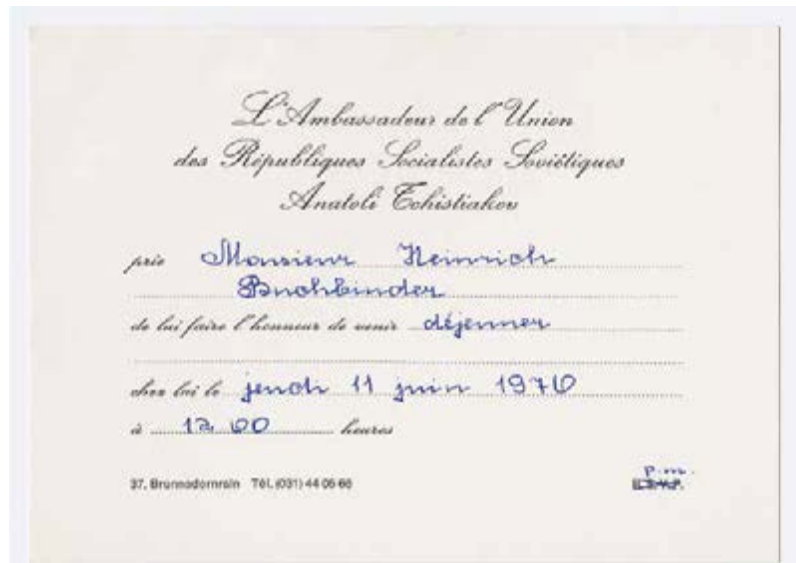 L'Ambassadeur de l'Union
des Républiques Socialistes Soviétiques
Anatoli Tchistiakov
prie Monsieur Heinrich
Buchbinder
de lui faire l'honneur de venir déjeuner
chez lui le jeudi 11 juin 1970
à 12 00 heures
p.m.
37, Brunnadernrain Tél. (031) 44 05 66 R.S.V.P.